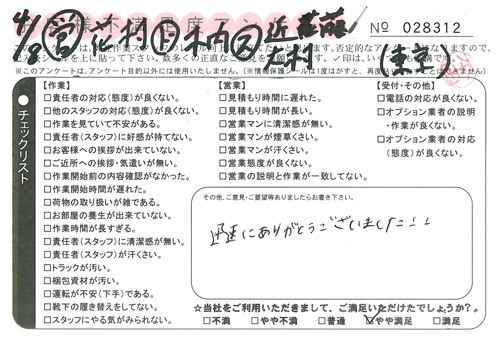 お客様不満足度アンケート
№ 028312
4/8 営 花村 日 木内 近藤
北村
(東京)
※このアンケートは、アンケート目的以外には使用いたしません。(※情報保護シールは1度はがすと、再度
チェックリスト
【作業】
□責任者の対応(態度)が良くない。
□他のスタッフの対応(態度)が良くない。
□作業を見ていて不安がある。
□責任者(スタッフ)に好感が持てない。
□お客様への挨拶が出来ていない。
□ご近所への挨拶・気遣いが無い。
□作業開始前の内容確認がなかった。
□作業開始時間が遅れた。
□荷物の取り扱いが雑である。
□お部屋の養生が出来ていない。
□作業時間が長すぎる。
□責任者(スタッフ)に清潔感が無い。
□責任者(スタッフ)が汗くさい。
□トラックが汚い。
□梱包資材が汚い。
□運転が不安(下手)である。
□靴下の履き替えをしてない。
□スタッフにやる気がみられない。
【営業】
□見積もり時間に遅れた。
□見積もり時間が長い。
□営業マンに清潔感が無い。
□営業マンが煙草くさい。
□営業マンが汗くさい。
□営業態度が良くない。
□営業の説明と作業が一致してない。
【受付・その他】
□電話の対応が良くない。
□オプション業者の説明
・作業が良くない。
□オプション業者の対応
(態度)が良くない。
その他、ご意見・ご要望等ありましたらお書き下さい。
迅速にありがとうございました!!!
☆当社をご利用いただきまして、ご満足いただけたでしょうか?
□不満 □やや不満 □普通 ☑やや満足 □満足